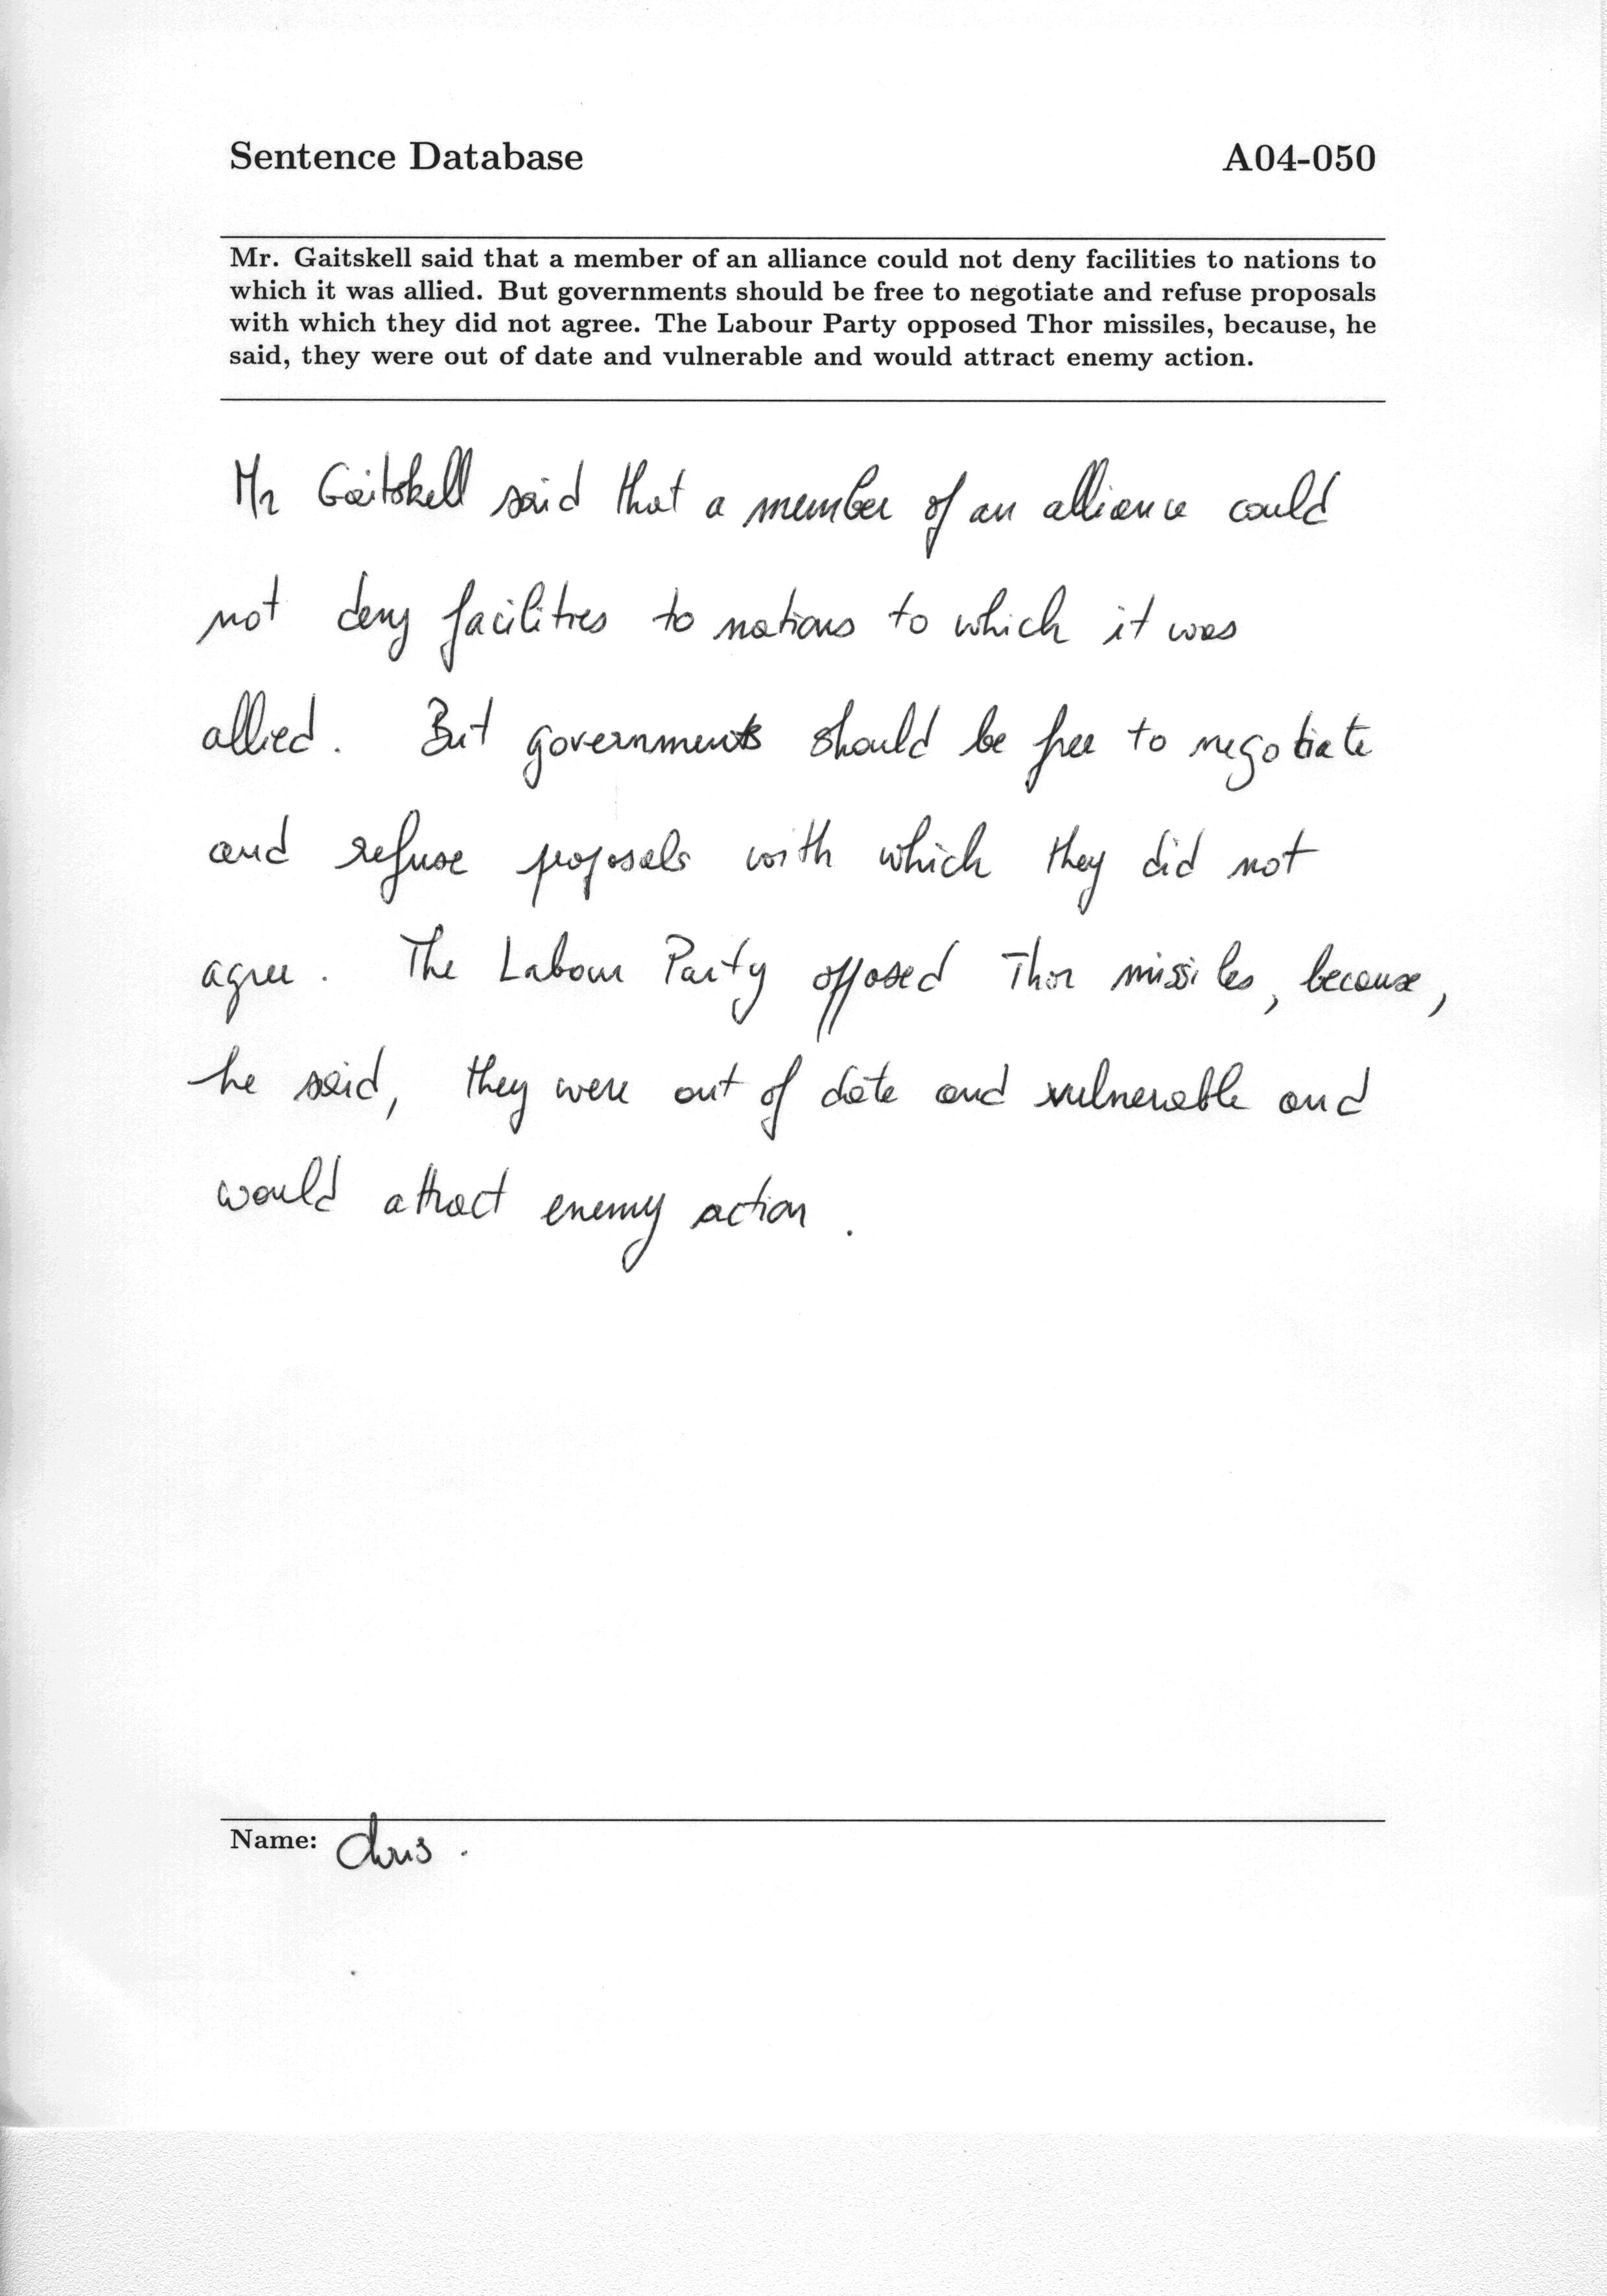 Sentence Database A04-050
Mr. Gaitskell said that a member of an alliance could not deny facilities to nations to
which it was allied. But governments should be free to negotiate and refuse proposals
with which they did not agree. The Labour Party opposed Thor missiles, because, he
said, they were out of date and vulnerable and would attract enemy action.
Mr Gaitskell said that a member of an alliance could
not deny facilities to nations to which it was
allied. But governments should be free to negotiate
and refuse proposals with which they did not
agree. The Labour Party opposed Thor missiles, because,
he said, they were out of date and vulnerable and
would attract enemy action.
Name: Chris.